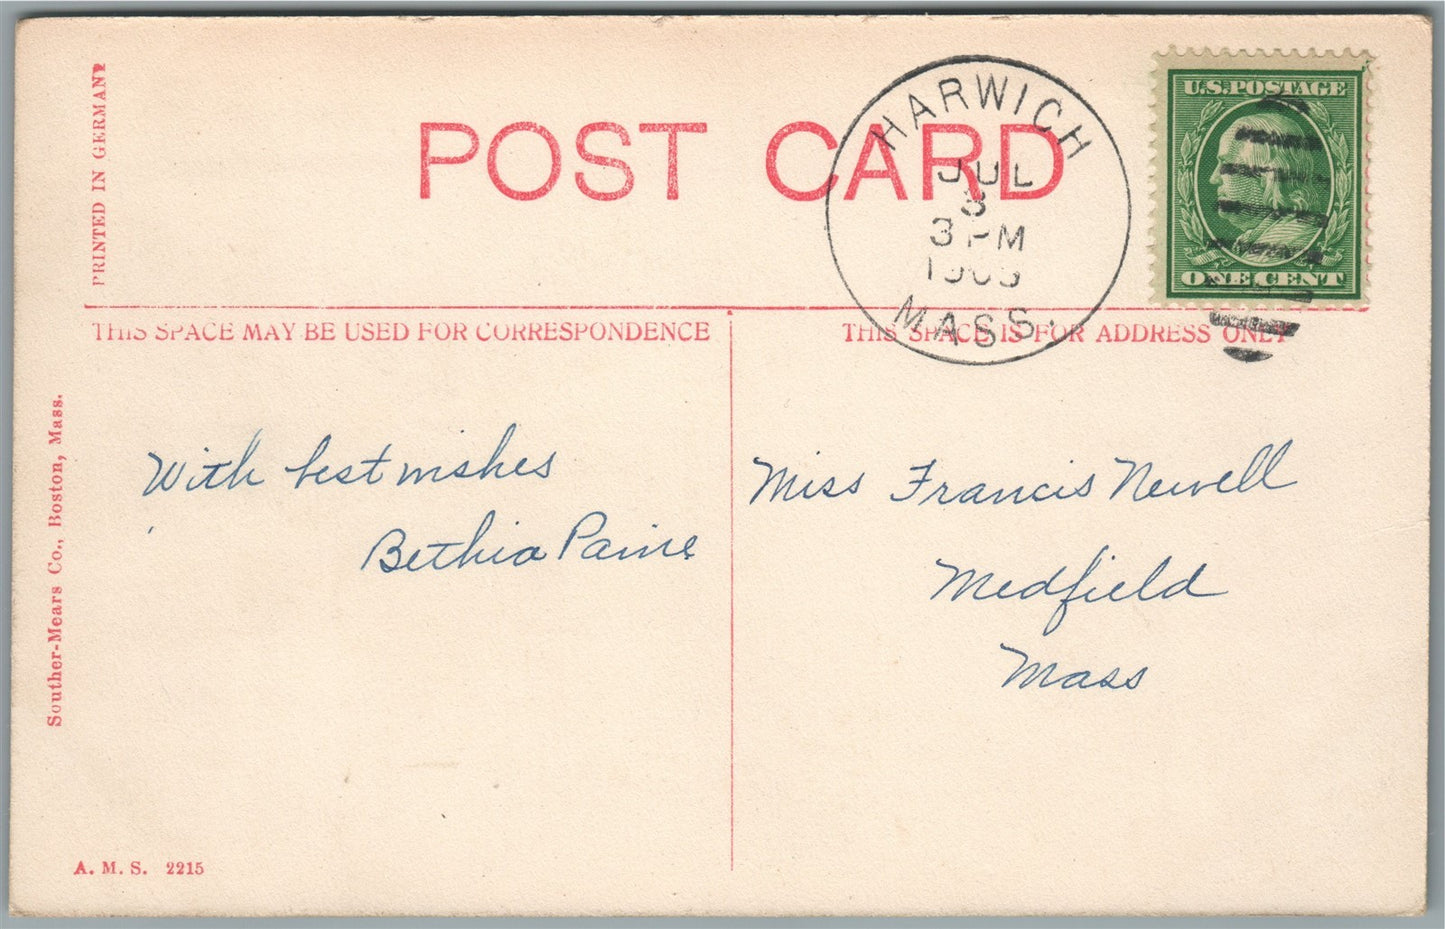 PRINTED IN GERMANY
POST CARD
HARWICH
JUL
3
3 PM
1909
MASS.
U.S. POSTAGE
ONE CENT
THIS SPACE MAY BE USED FOR CORRESPONDENCE
THIS SPACE IS FOR ADDRESS ONLY
With best wishes
Bethia Paine
Miss Francis Newell
Medfield
Mass
Souther-Mears Co., Boston, Mass.
A. M. S. 2215